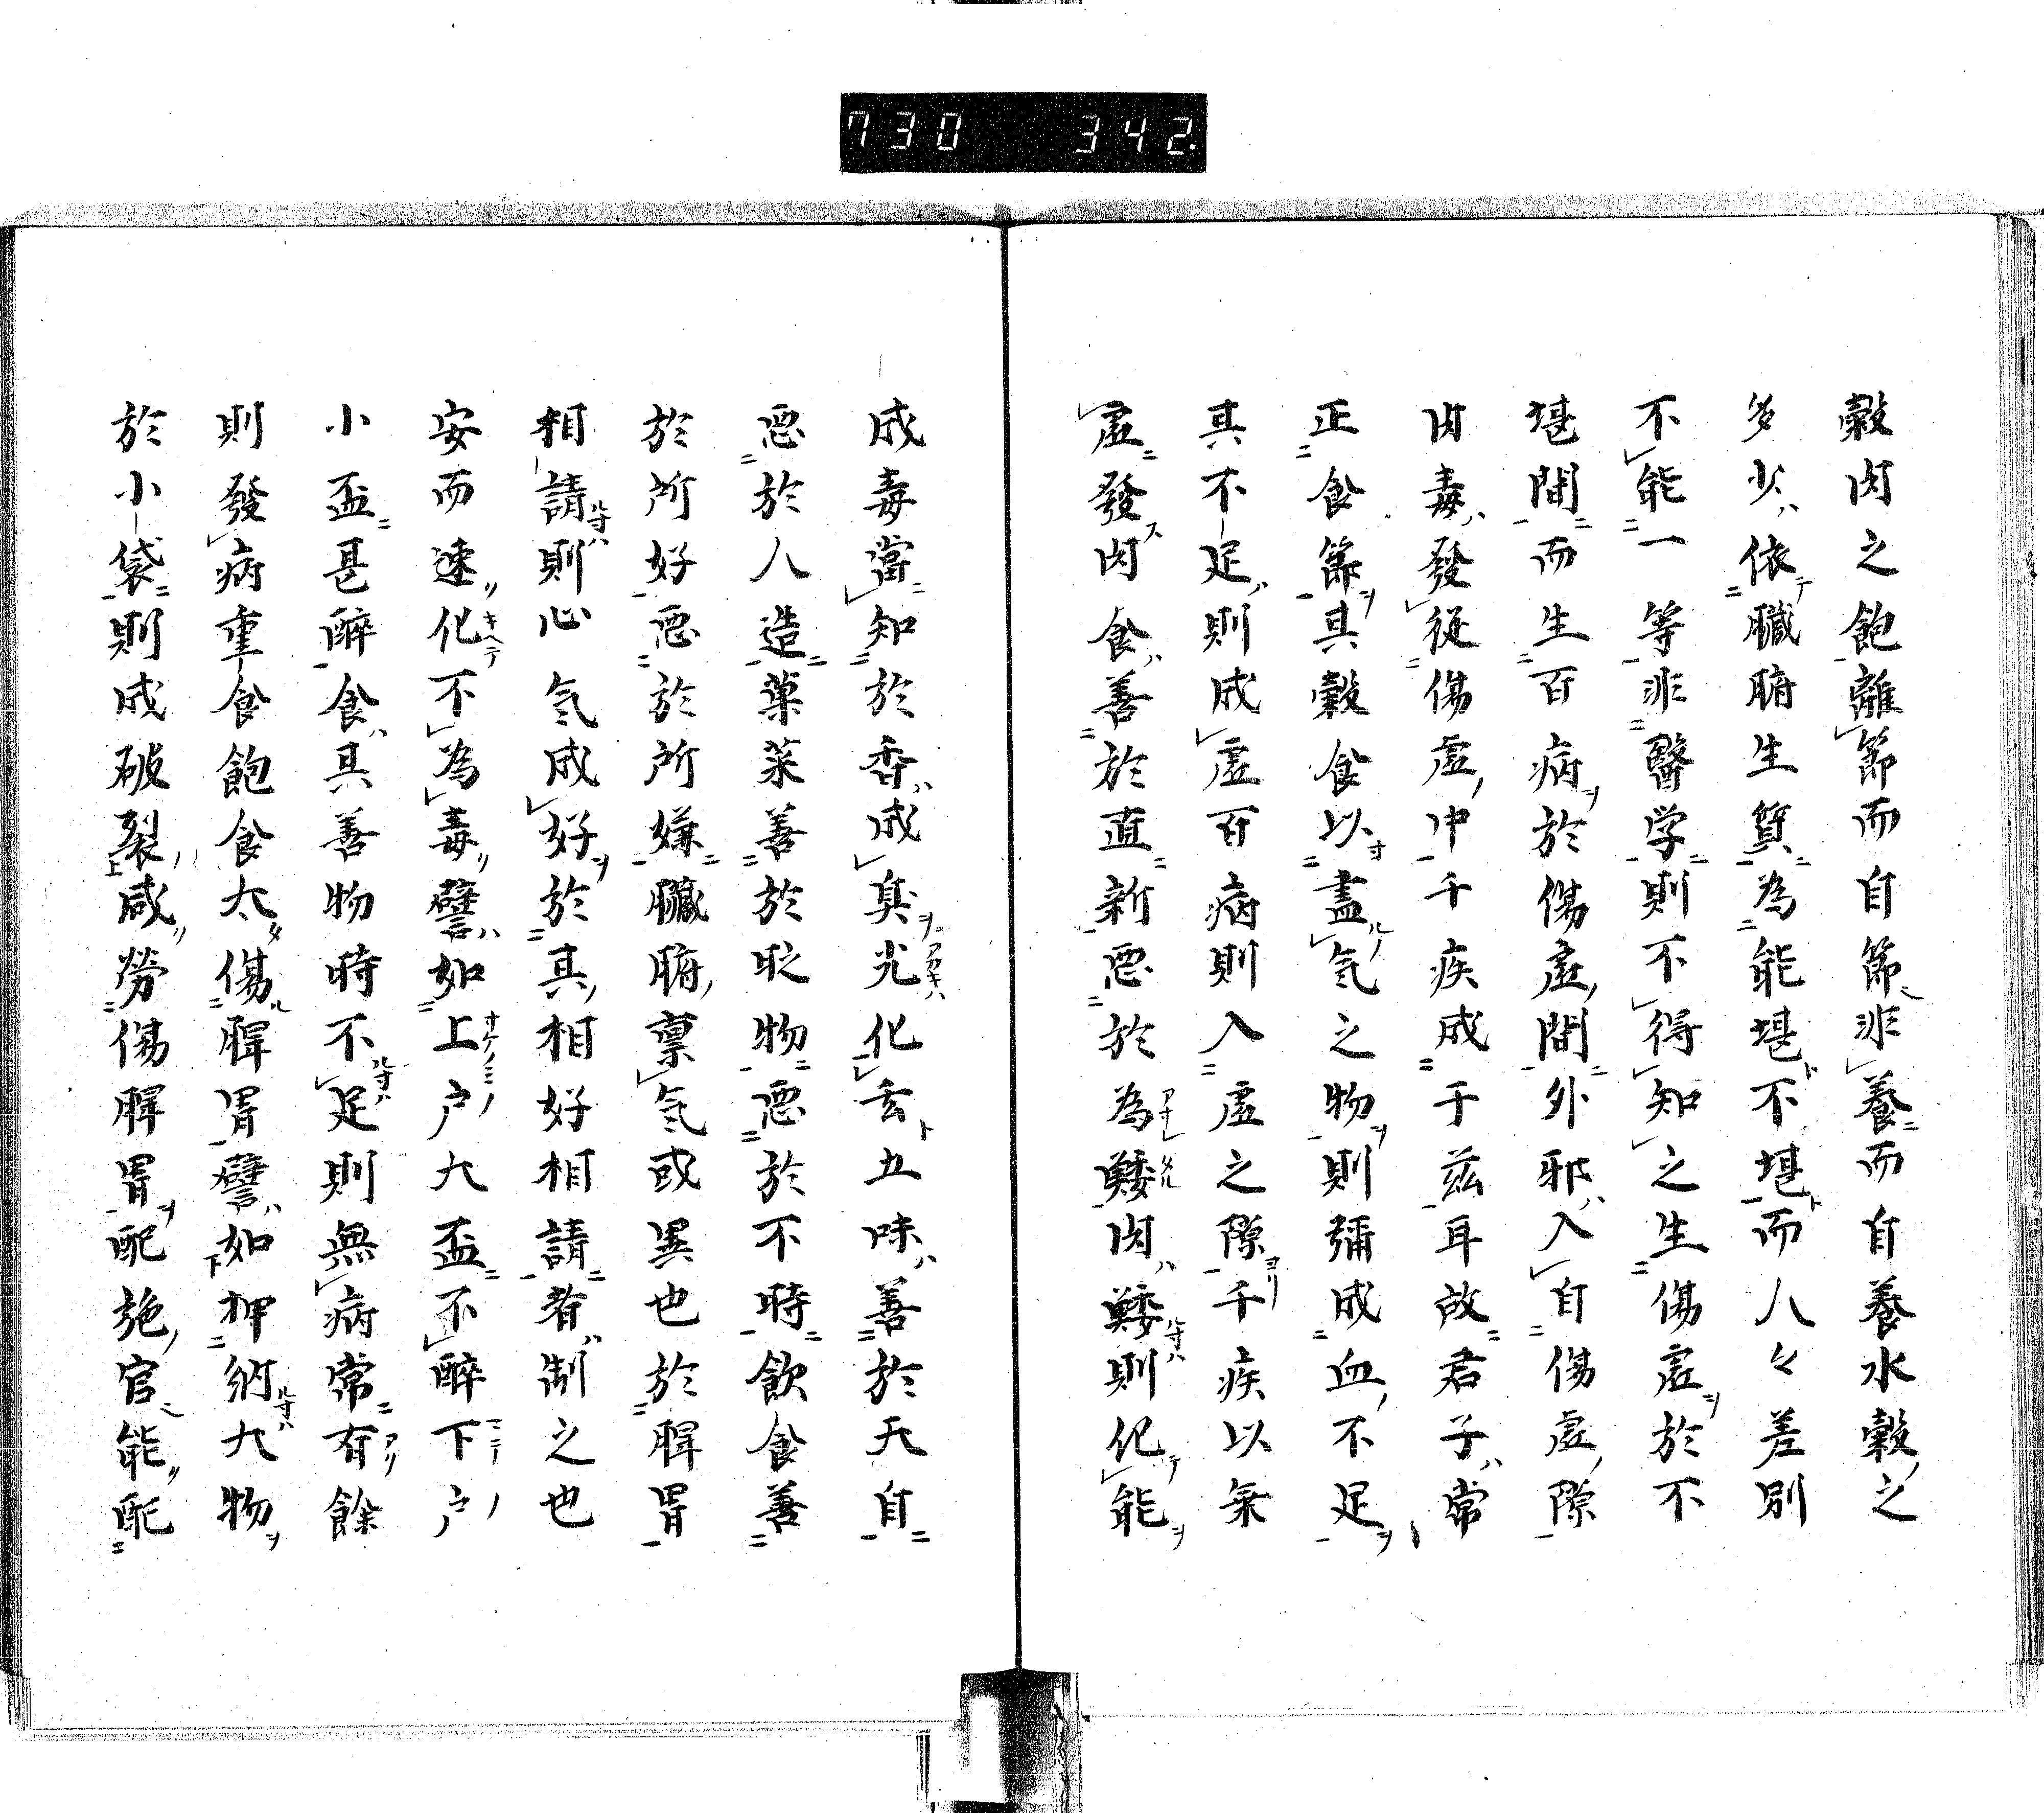 730 342.
穀肉之飽離節而自節非養而自養水穀之
多少依臓腑生質為能堪不堪而人々差別
不能一等非醫学則不得知之生傷虚於不
堪間而生百病於傷虚間外邪入自傷虚隙
肉毒發従傷虚中千疾成于茲耳故君子常
正食節其穀食以盡気之物則彌成血不足
其不足則成虚百病則入虚之隙千疾以棄
虚發肉食善於直新悪於為鯘肉鯘則化能
成毒當知於香成臭光化玄五味善於天自
悪於人造菓菜善於貶物悪於不時飲食善
於所好悪於所嫌臓腑稟気或異也於脾胃
相請則心気成好於其相好相請者制之也
安而速化不為毒譬如上戸大盃不醉下戸
小盃甚醉食其善物時不足則無病常有餘
則發病重食飽食太傷脾胃譬如押納大物
於小袋則成破裂咸労傷脾胃配施官能配